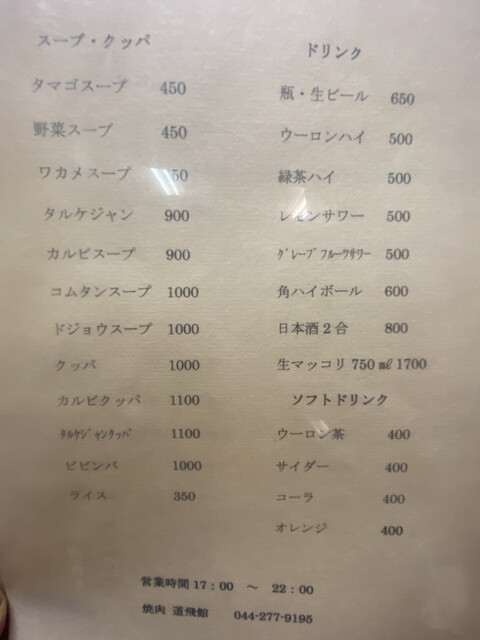 スープ・クッパ
タマゴスープ 450
野菜スープ 450
ワカメスープ 50
タルケジャン 900
カルビスープ 900
コムタンスープ 1000
ドジョウスープ 1000
クッパ 1000
カルビクッパ 1100
タルケジャンクッパ 1100
ビビンバ 1000
ライス 350
ドリンク
瓶・生ビール 650
ウーロンハイ 500
緑茶ハイ 500
レモンサワー 500
グレープフルーツサワー 500
角ハイボール 600
日本酒2合 800
生マッコリ 750㎖ 1700
ソフトドリンク
ウーロン茶 400
サイダー 400
コーラ 400
オレンジ 400
営業時間 17：00 ～ 22：00
焼肉 道飛館 044-277-9195